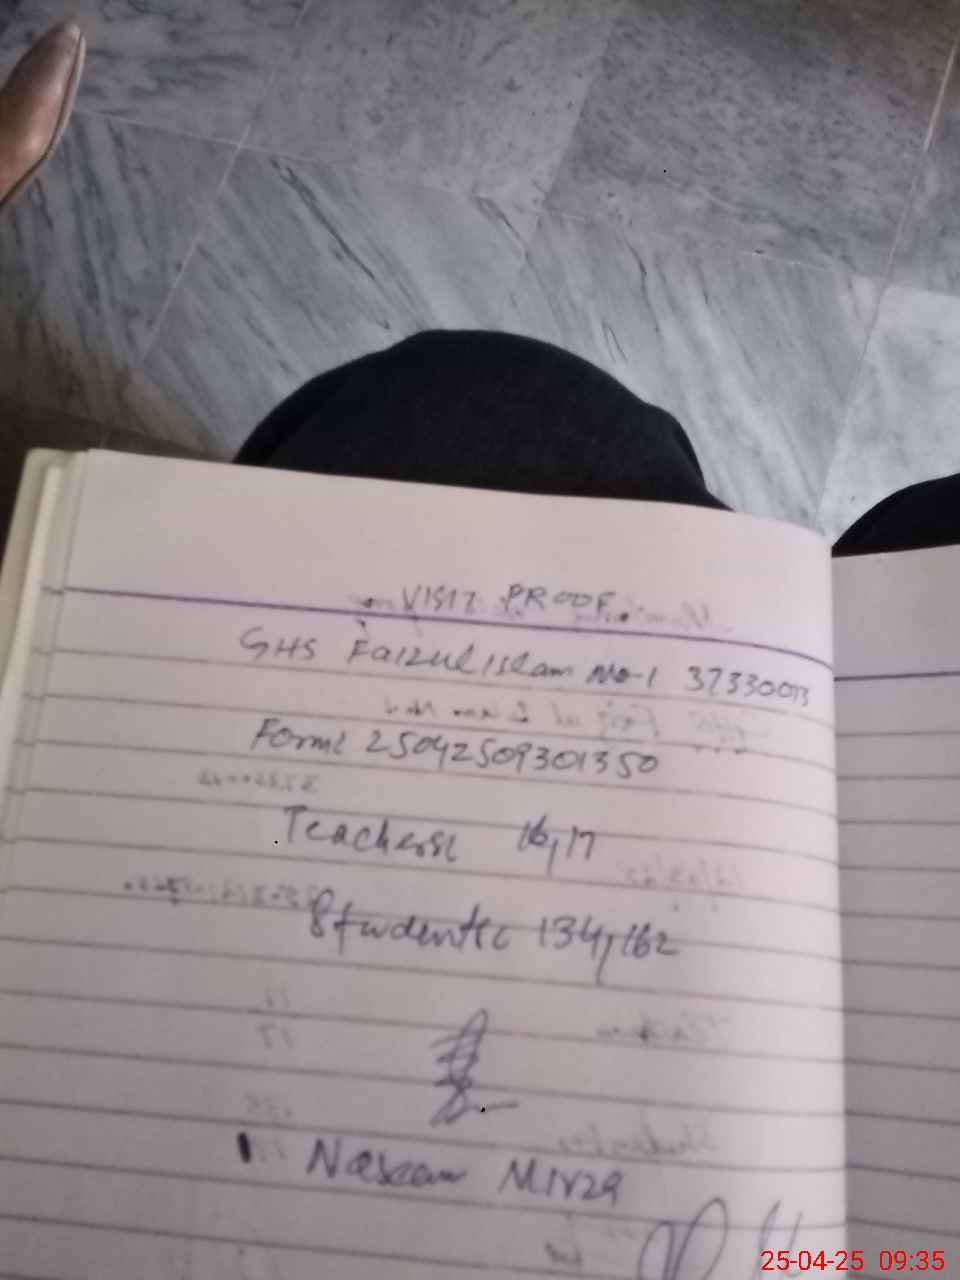 VISIT PROOF
GHS Faizul Islam No-1 37330013
Form: 25042509301350
Teachers: 16,17
Students: 134,162
Naseem Mirza
25-04-25 09:35